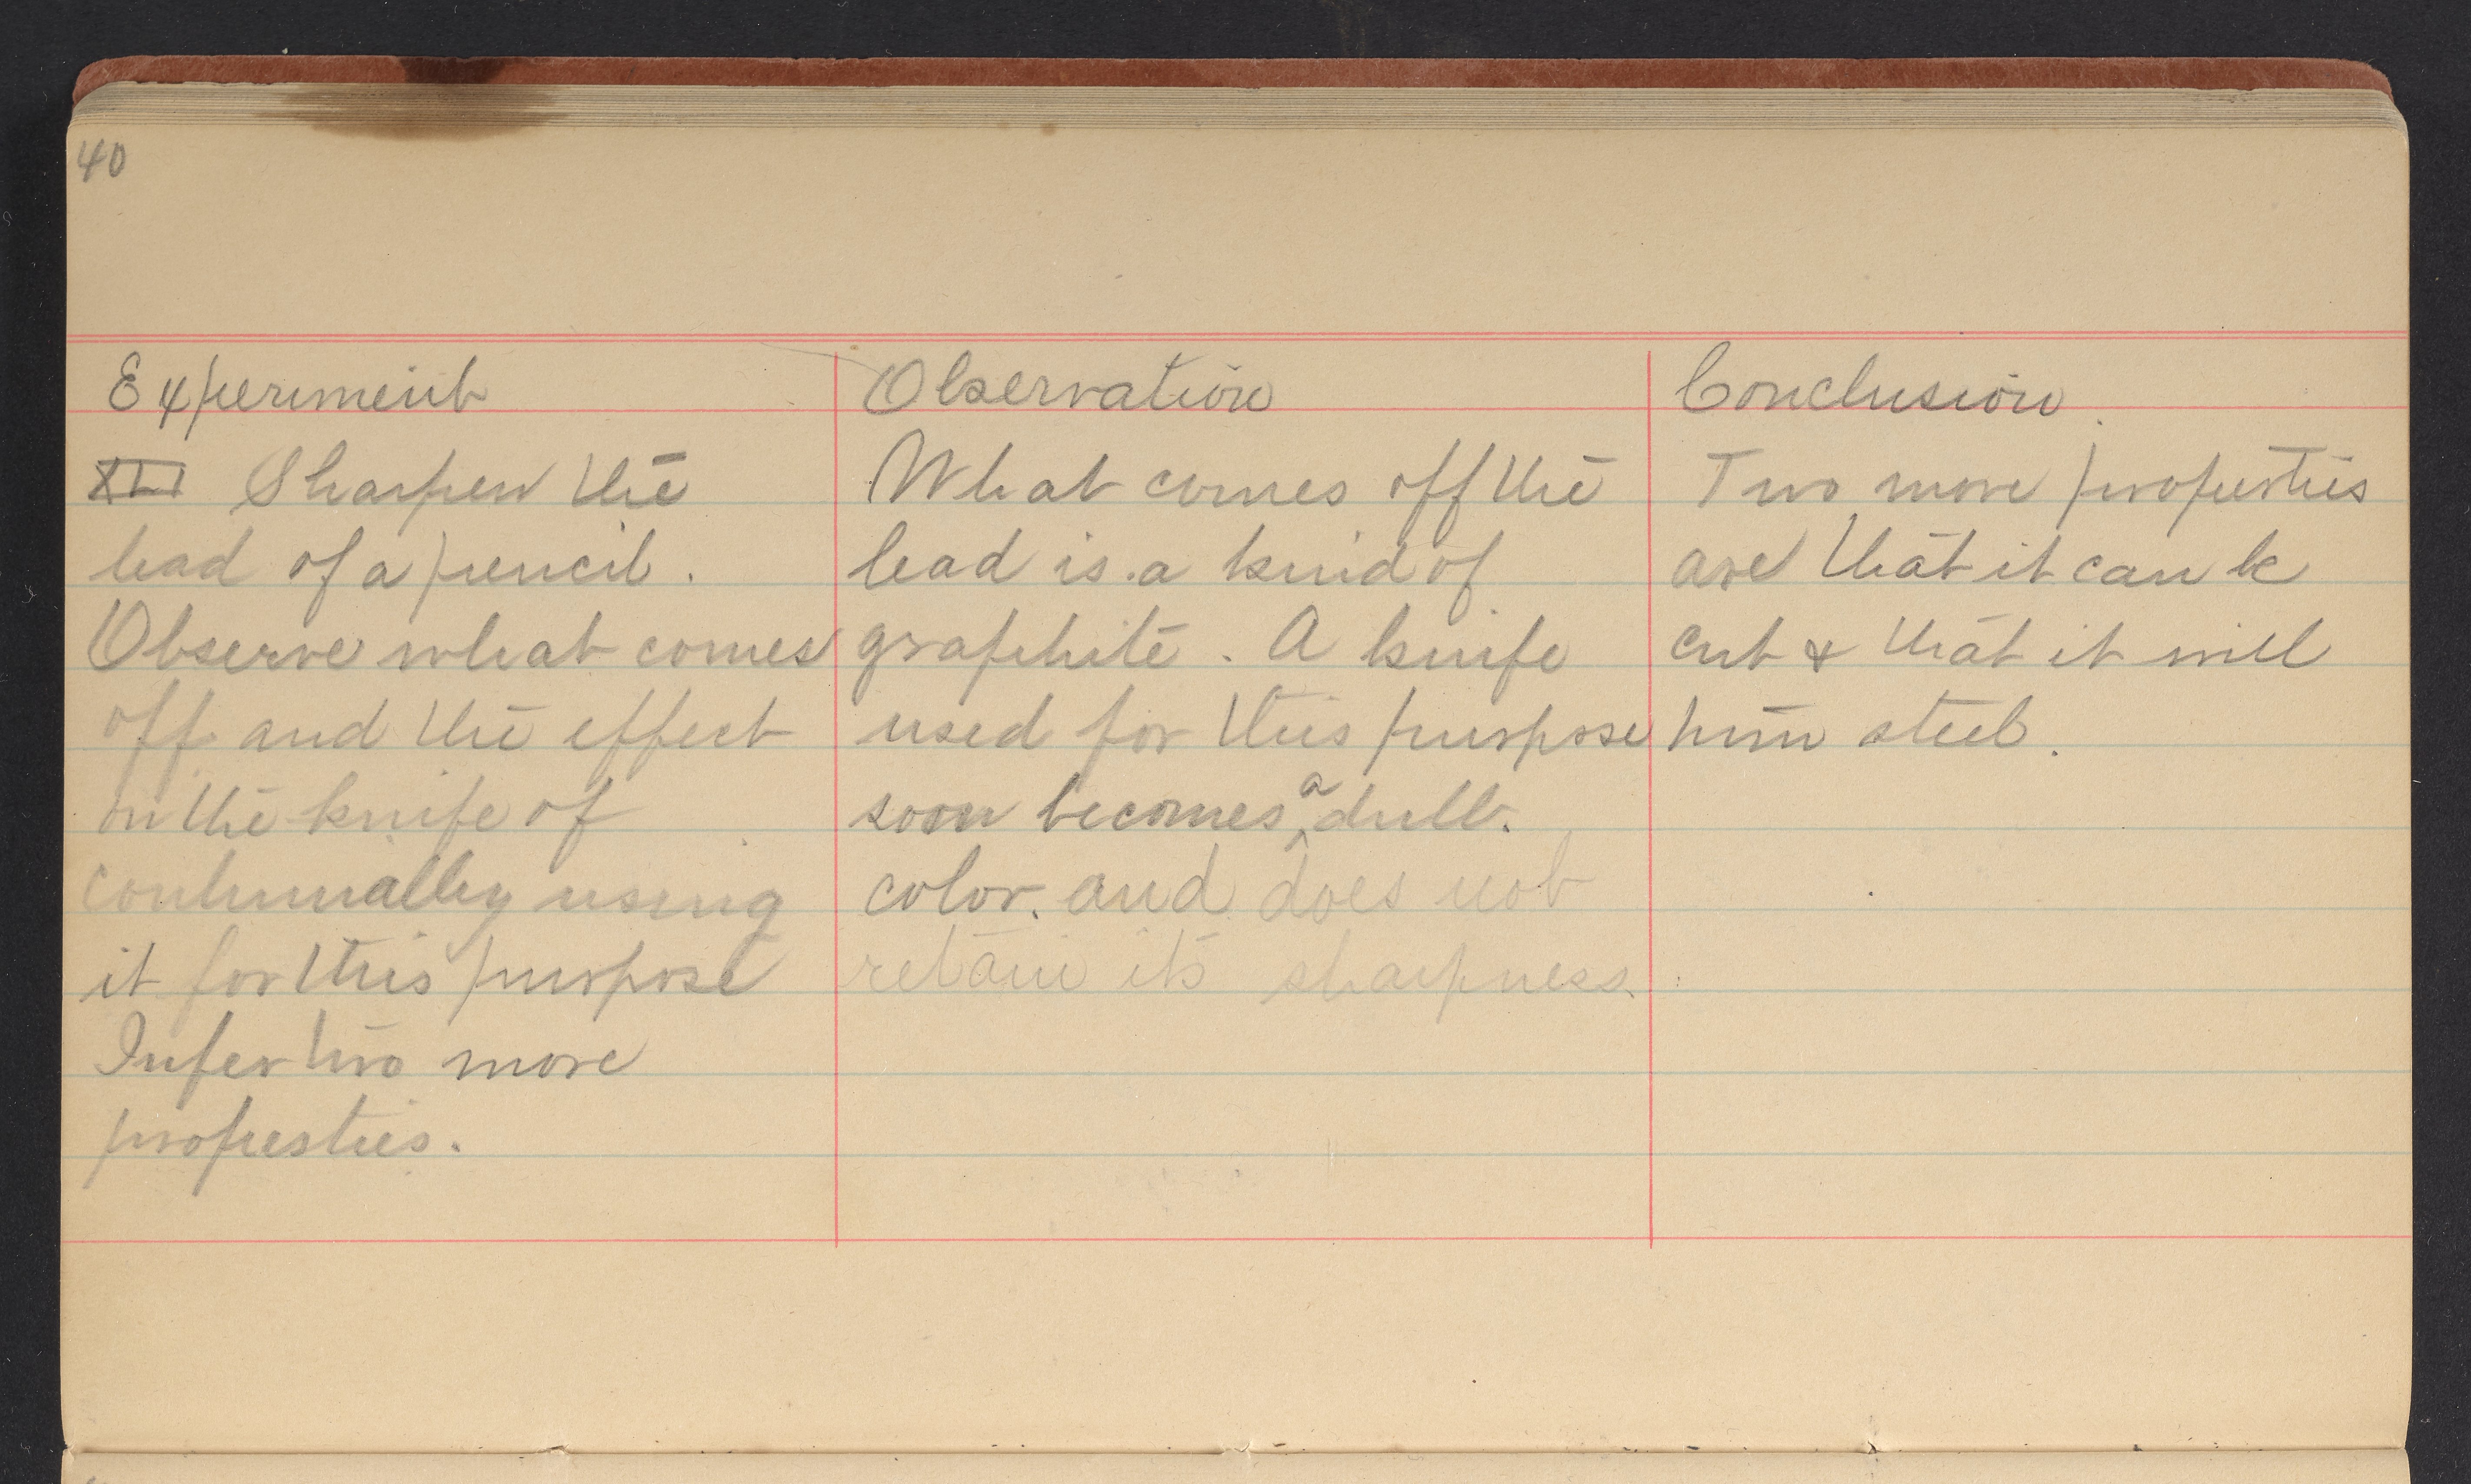 40
Experiment
XLI Sharpen the
lead of a pencil.
Observe what comes
off and the effect
on the knife of
continually using
it for this purpose
Infer two more
properties.
Observation
What comes off the
lead is a kind of
graphite. A knife
used for this purpose
soon becomes a dull.
color. and does not
retain its sharpness.
Conclusion
Two more properties
are that it can be
cut & that it will
turn steel.